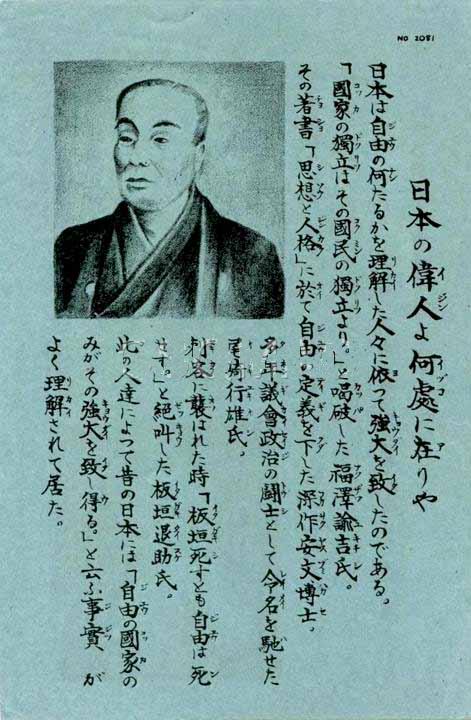 NO 2081
日本の偉人よ何處に在りや
日本は自由の何たるかを理解した人々に依つて強大を致したのである。
「國家の獨立はその國民の獨立より。」と喝破した福澤諭吉氏。
その著書「思想と人格」に於て自由の定義を下した深作安文博士。
多年議會政治の闘士として令名を馳せた
尾崎行雄氏。
刺客に襲はれた時「板垣死すとも自由は死
せず。」と絶叫した板垣退助氏。
此の人達によつて昔の日本には「自由の國家の
みがその強大を致し得る。」と云ふ事實が
よく理解されて居た。